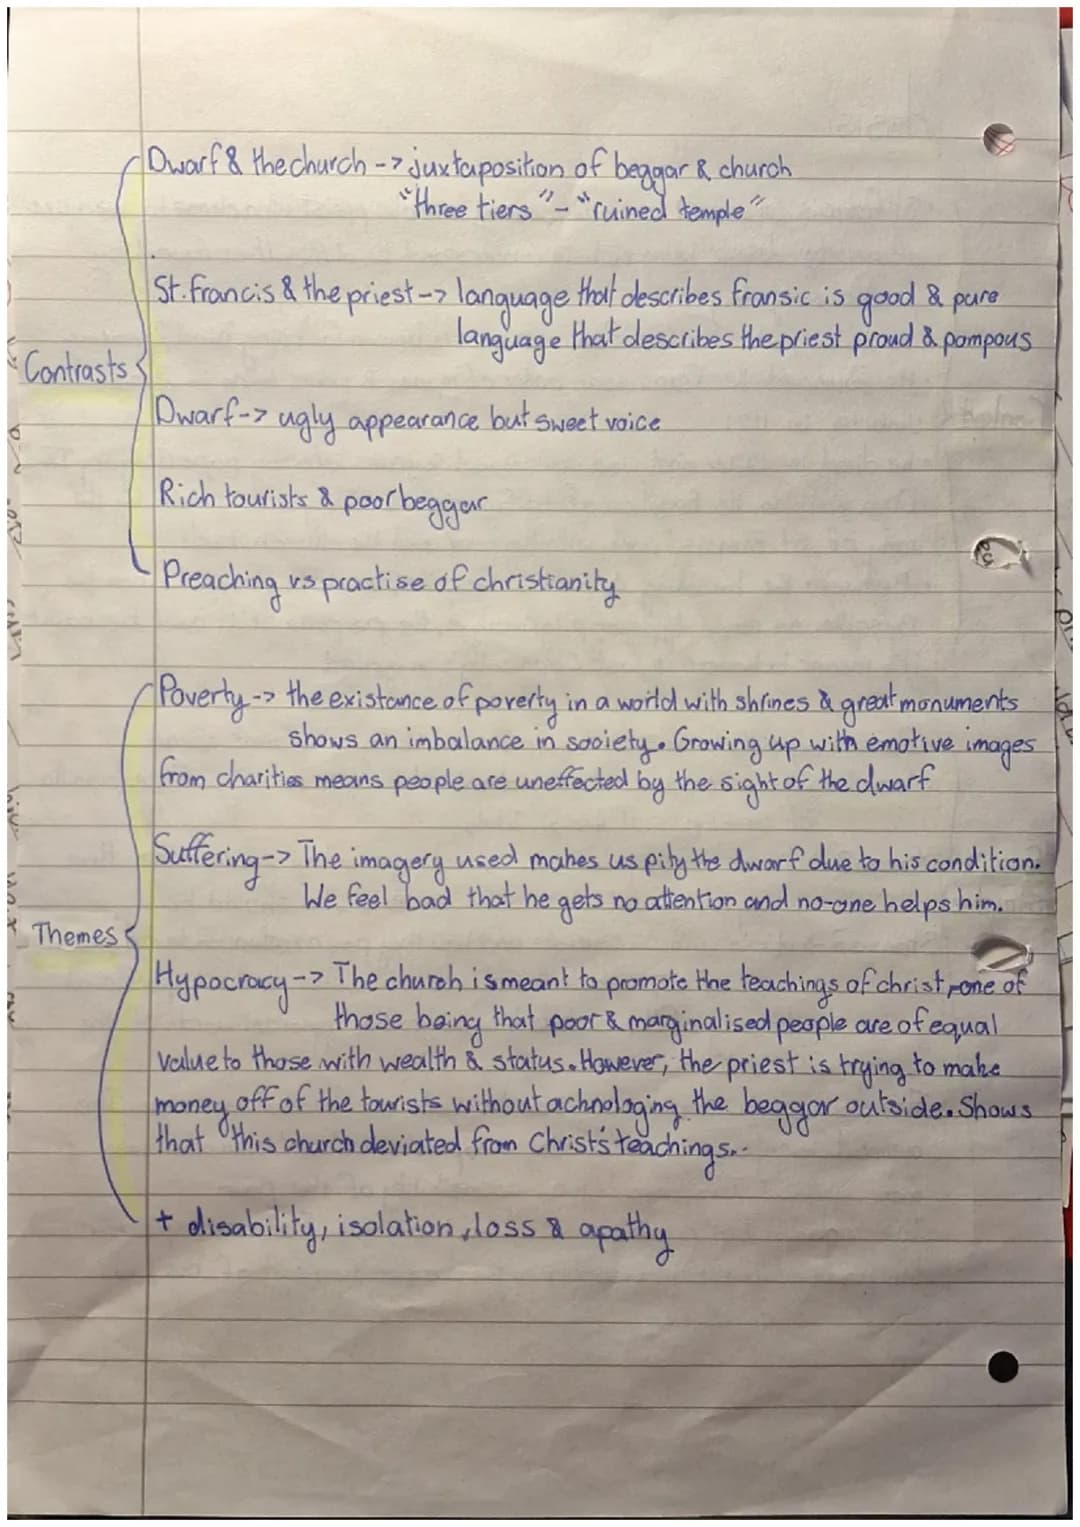 Dwarf & the church -> juxtaposition of beggar & church
"three tiers" - "ruined temple"
St. Francis & the priest -> language that describes fransic is good & pure
language that describes the priest proud & pompous
Contrasts
Dwarf -> ugly appearance but sweet voice
Rich tourists & poor beggar
Preaching vs practise of christianity
Poverty -> the existance of poverty in a world with shrines & great monuments
shows an imbalance in society. Growing up with emotive images
from charities means people are uneffected by the sight of the dwarf
Suffering -> The imagery used makes us pity the dwarf due to his condition.
We feel bad that he gets no attention and no-one helps him.
Themes
Hypocracy -> The church is meant to promote the teachings of christ, one of
those being that poor & marginalised people are of equal
value to those with wealth & status. However, the priest is trying to make
money off of the tourists without achnologing the beggar outside. Shows
that this church deviated from Christ's teachings..
+ disability, isolation, loss & apathy